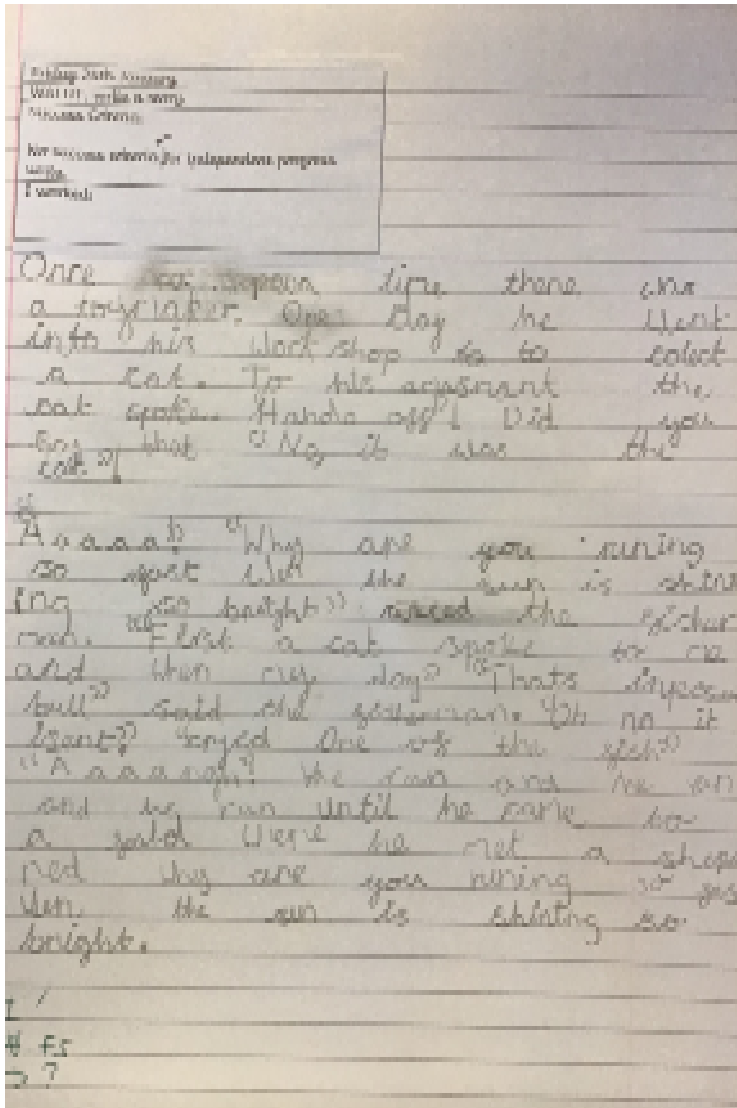 Friday 20th January
WALT: write a story
Success Criteria
No success criteria for independent progress
write.
I worked:
Once upon time there was
a toymaker. One Day he Went
into his Work shop to to colect
a cat. To his the
cat spoke. "Hands off"! Did you
say that "No, it was the
cat."!
"Aaaaa!" "Why are you runing
so fast Wen the sun is shin
ing so bright" the fisher
man. "First a cat spoke to me
and then my dog" "Thats imposa
bull" said the fisherman. "Oh no it
isent" "cryed One of the fish"
"Aaaaagh"! He run and he ran
and he run until he came to
a feild Were he met a shepe
red Why are you runing so fas
Wen the sun is shining so
bright.